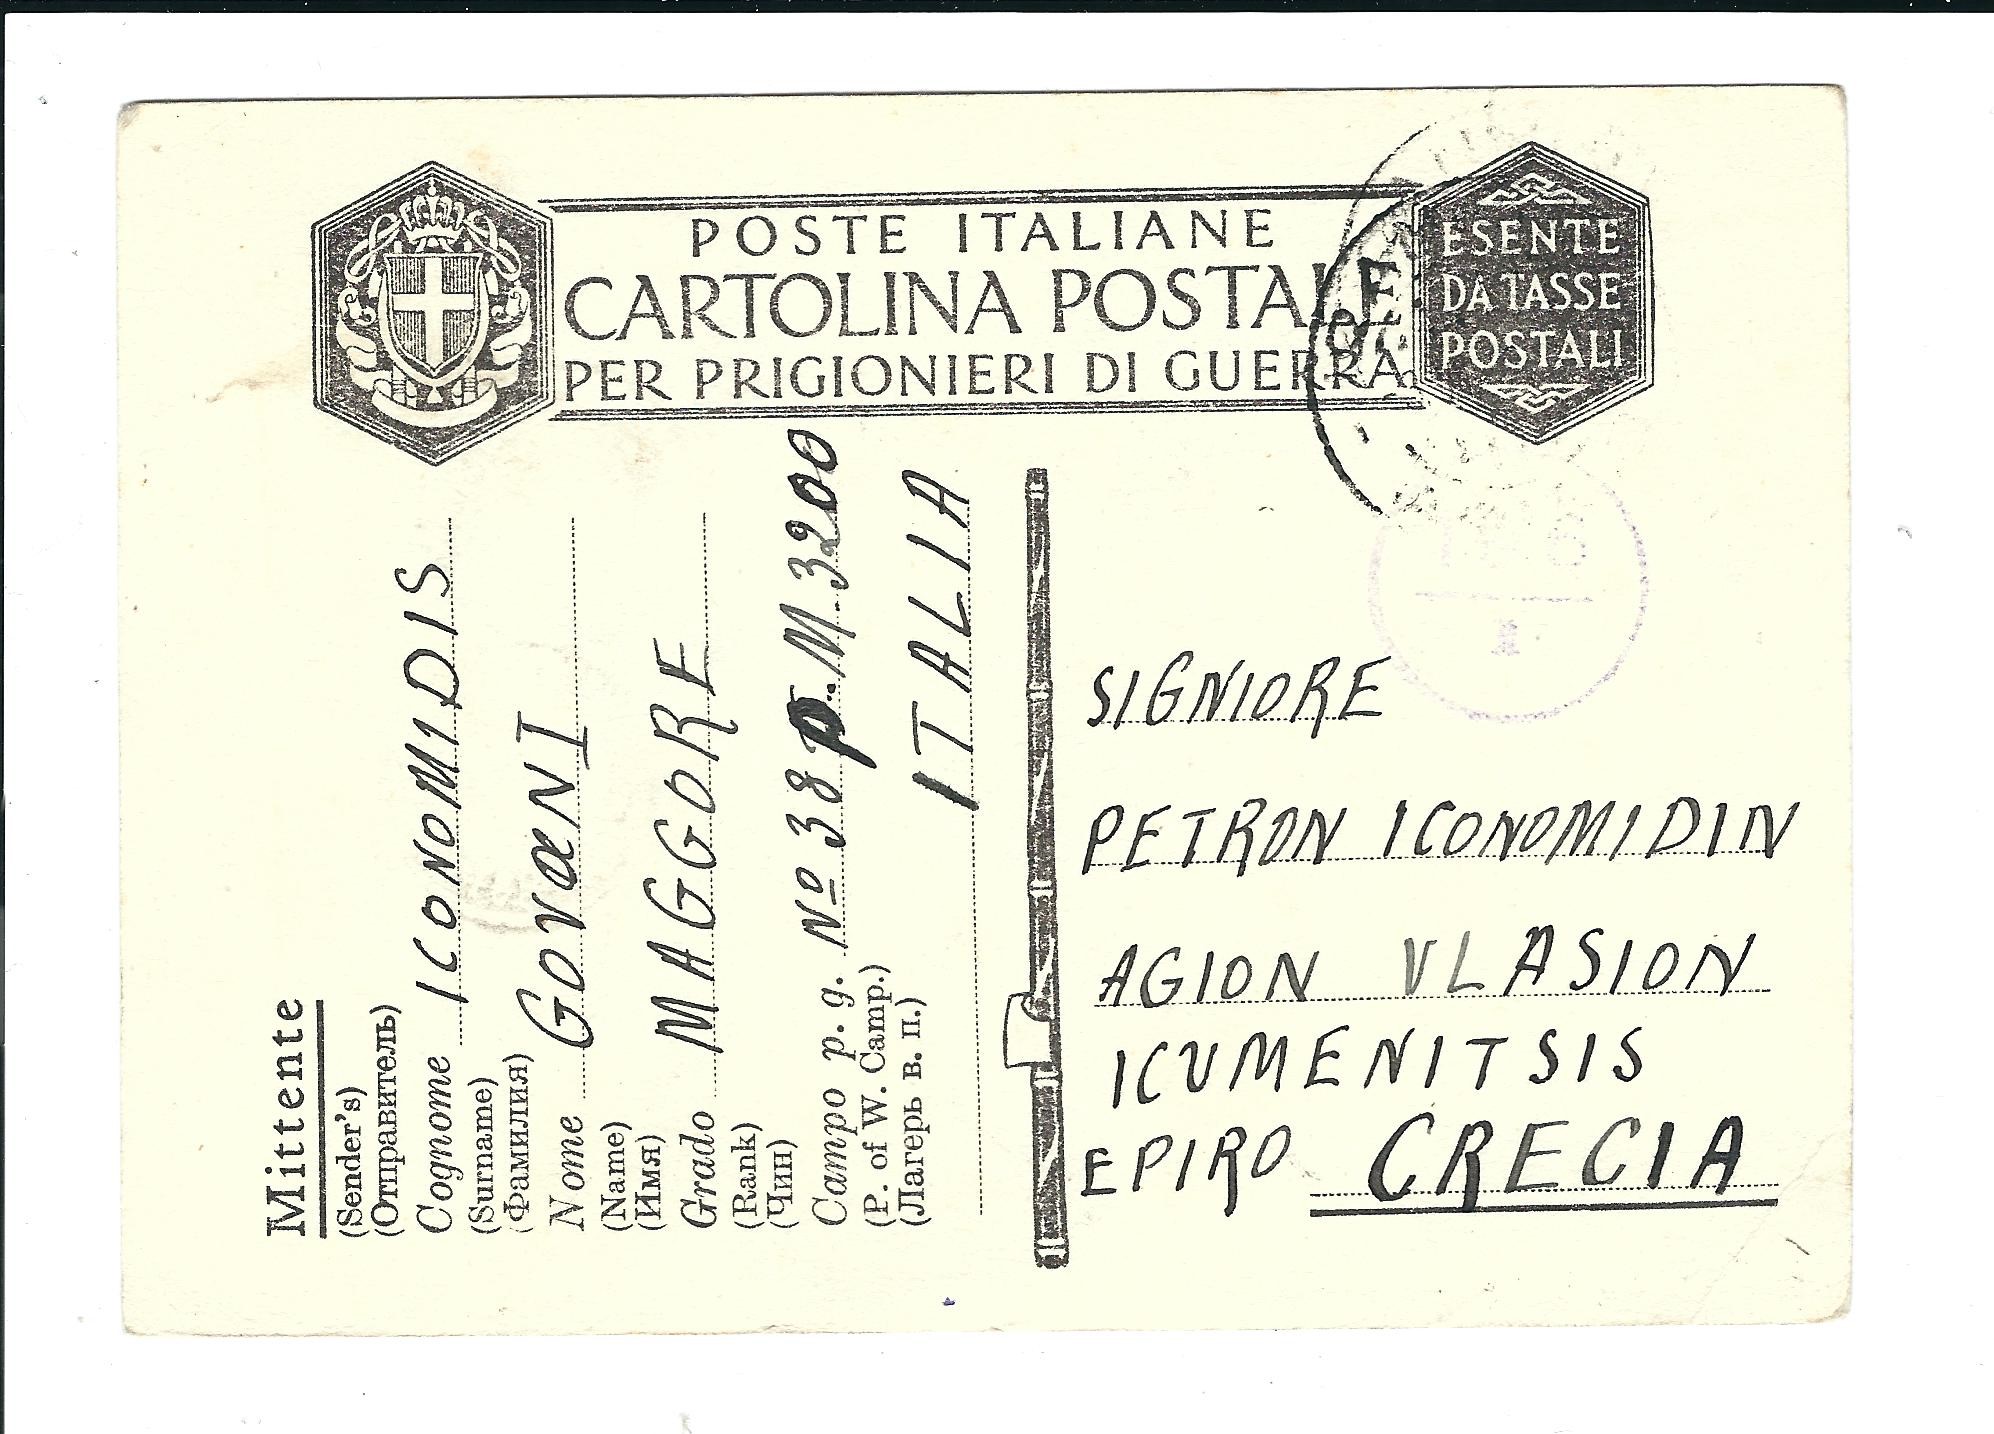 POSTE ITALIANE
CARTOLINA POSTALE
PER PRIGIONIERI DI GUERRA
ESENTE
DA TASSE
POSTALI
Mittente
(Sender's)
(Отправитель)
Cognome ICONOMIDIS
(Surname)
(Фамилия)
Nome GOVANI
(Name)
(Имя)
Grado MAGGORE
(Rank)
(Чин)
Campo p. g. No 38 P. M. 3200
(P. of W. Camp.)
(Лагерь в. п.)
ITALIA
SIGNIORE
PETRON ICONOMIDIN
AGION VLASION
ICUMENITSIS
EPIRO CRECIA